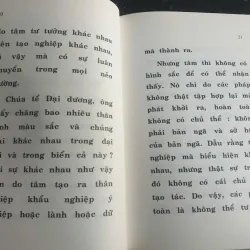 do tâm tư tưởng khác nhau
tạo nghiệp khác nhau,
vậy mà có sự luân
chuyển trong mọi nẻo
Chúa tể Đại dương, ông
thấy chăng bao nhiêu thân
hình màu sắc và chủng
khác nhau trong đại
và trong biển cả này ?
sự khác nhau như vậy
do tâm tạo ra thân
nghiệp khẩu nghiệp ý
nghiệp hoặc lành hoặc dữ
21
mà thành ra.
Nhưng tâm thì không có
hình sắc để có thể nhận
thấy. Nó chỉ do các pháp
không thật tập hợp lại
phát khởi ra, hoàn toàn
không có cái chủ thể : không
phải bản ngã và sở hữu
của bản ngã. Dẫu rằng
nghiệp mà biểu hiện khác
nhau, nhưng thật sự trong
đó không có cái chủ thể
tạo tác. Do vậy, các pháp
toàn là không thể tư